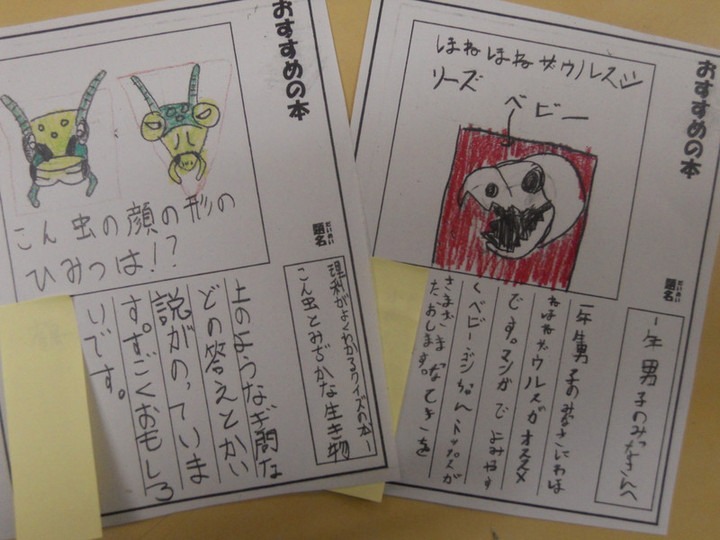 おすすめの本
こん虫の顔の形の
ひみつは!?
だいめい
題名
理科がよくわかるクイズの本ー
こん虫とみぢかな生き物
上のようなぎ問な
どの答えとかい
説がのっていま
す。すごくおもしろ
いです。
おすすめの本
ほねほねザウルスシ
リーズ
ベビー
だいめい
題名
一年男子のみなさんへ
一年生男子のみなさんにわほ
ねほねザウルスがオススメ
です。マンガでよみやす
くベビー、ゴンちゃん、トップスが
さまざまなてきを
たおします。